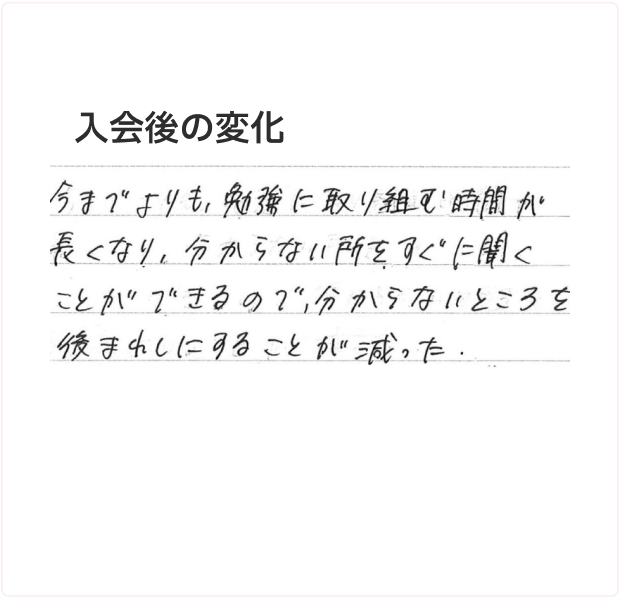 入会後の変化
今までよりも,勉強に取り組む時間が
長くなり,分からない所をすぐに聞く
ことができるので,分からないところを
後まれしにすることが減った.